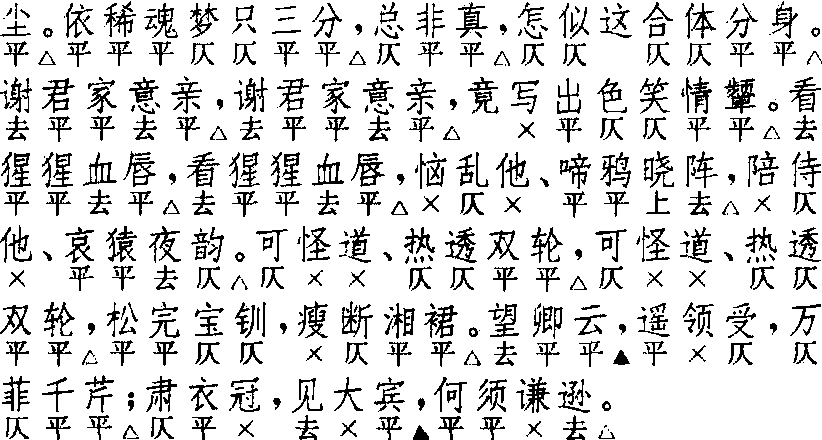 尘。依稀魂梦只三分，总非真，怎似这合体分身。
平△平平平仄仄平平△仄平平△仄仄 仄仄平平△
谢君家意亲，谢君家意亲，竟写出色笑情颦。看
去平平去平△去平平去平△ ×平仄仄平平△去
猩猩血唇，看猩猩血唇，恼乱他、啼鸦晓阵，陪侍
平平去平△去平平去平△×仄× 平平上去△×仄
他、哀猿夜韵。可怪道、热透双轮，可怪道、热透
× 平平去仄△仄×× 仄仄平平△仄×× 仄仄
双轮，松完宝钏，瘦断湘裙。望卿云，遥领受，万
平平△平平仄仄 ×仄平平△去平平▲平×仄 仄
菲千芹；肃衣冠，见大宾，何须谦逊。
仄平平△仄平× 去×平▲平平×去△